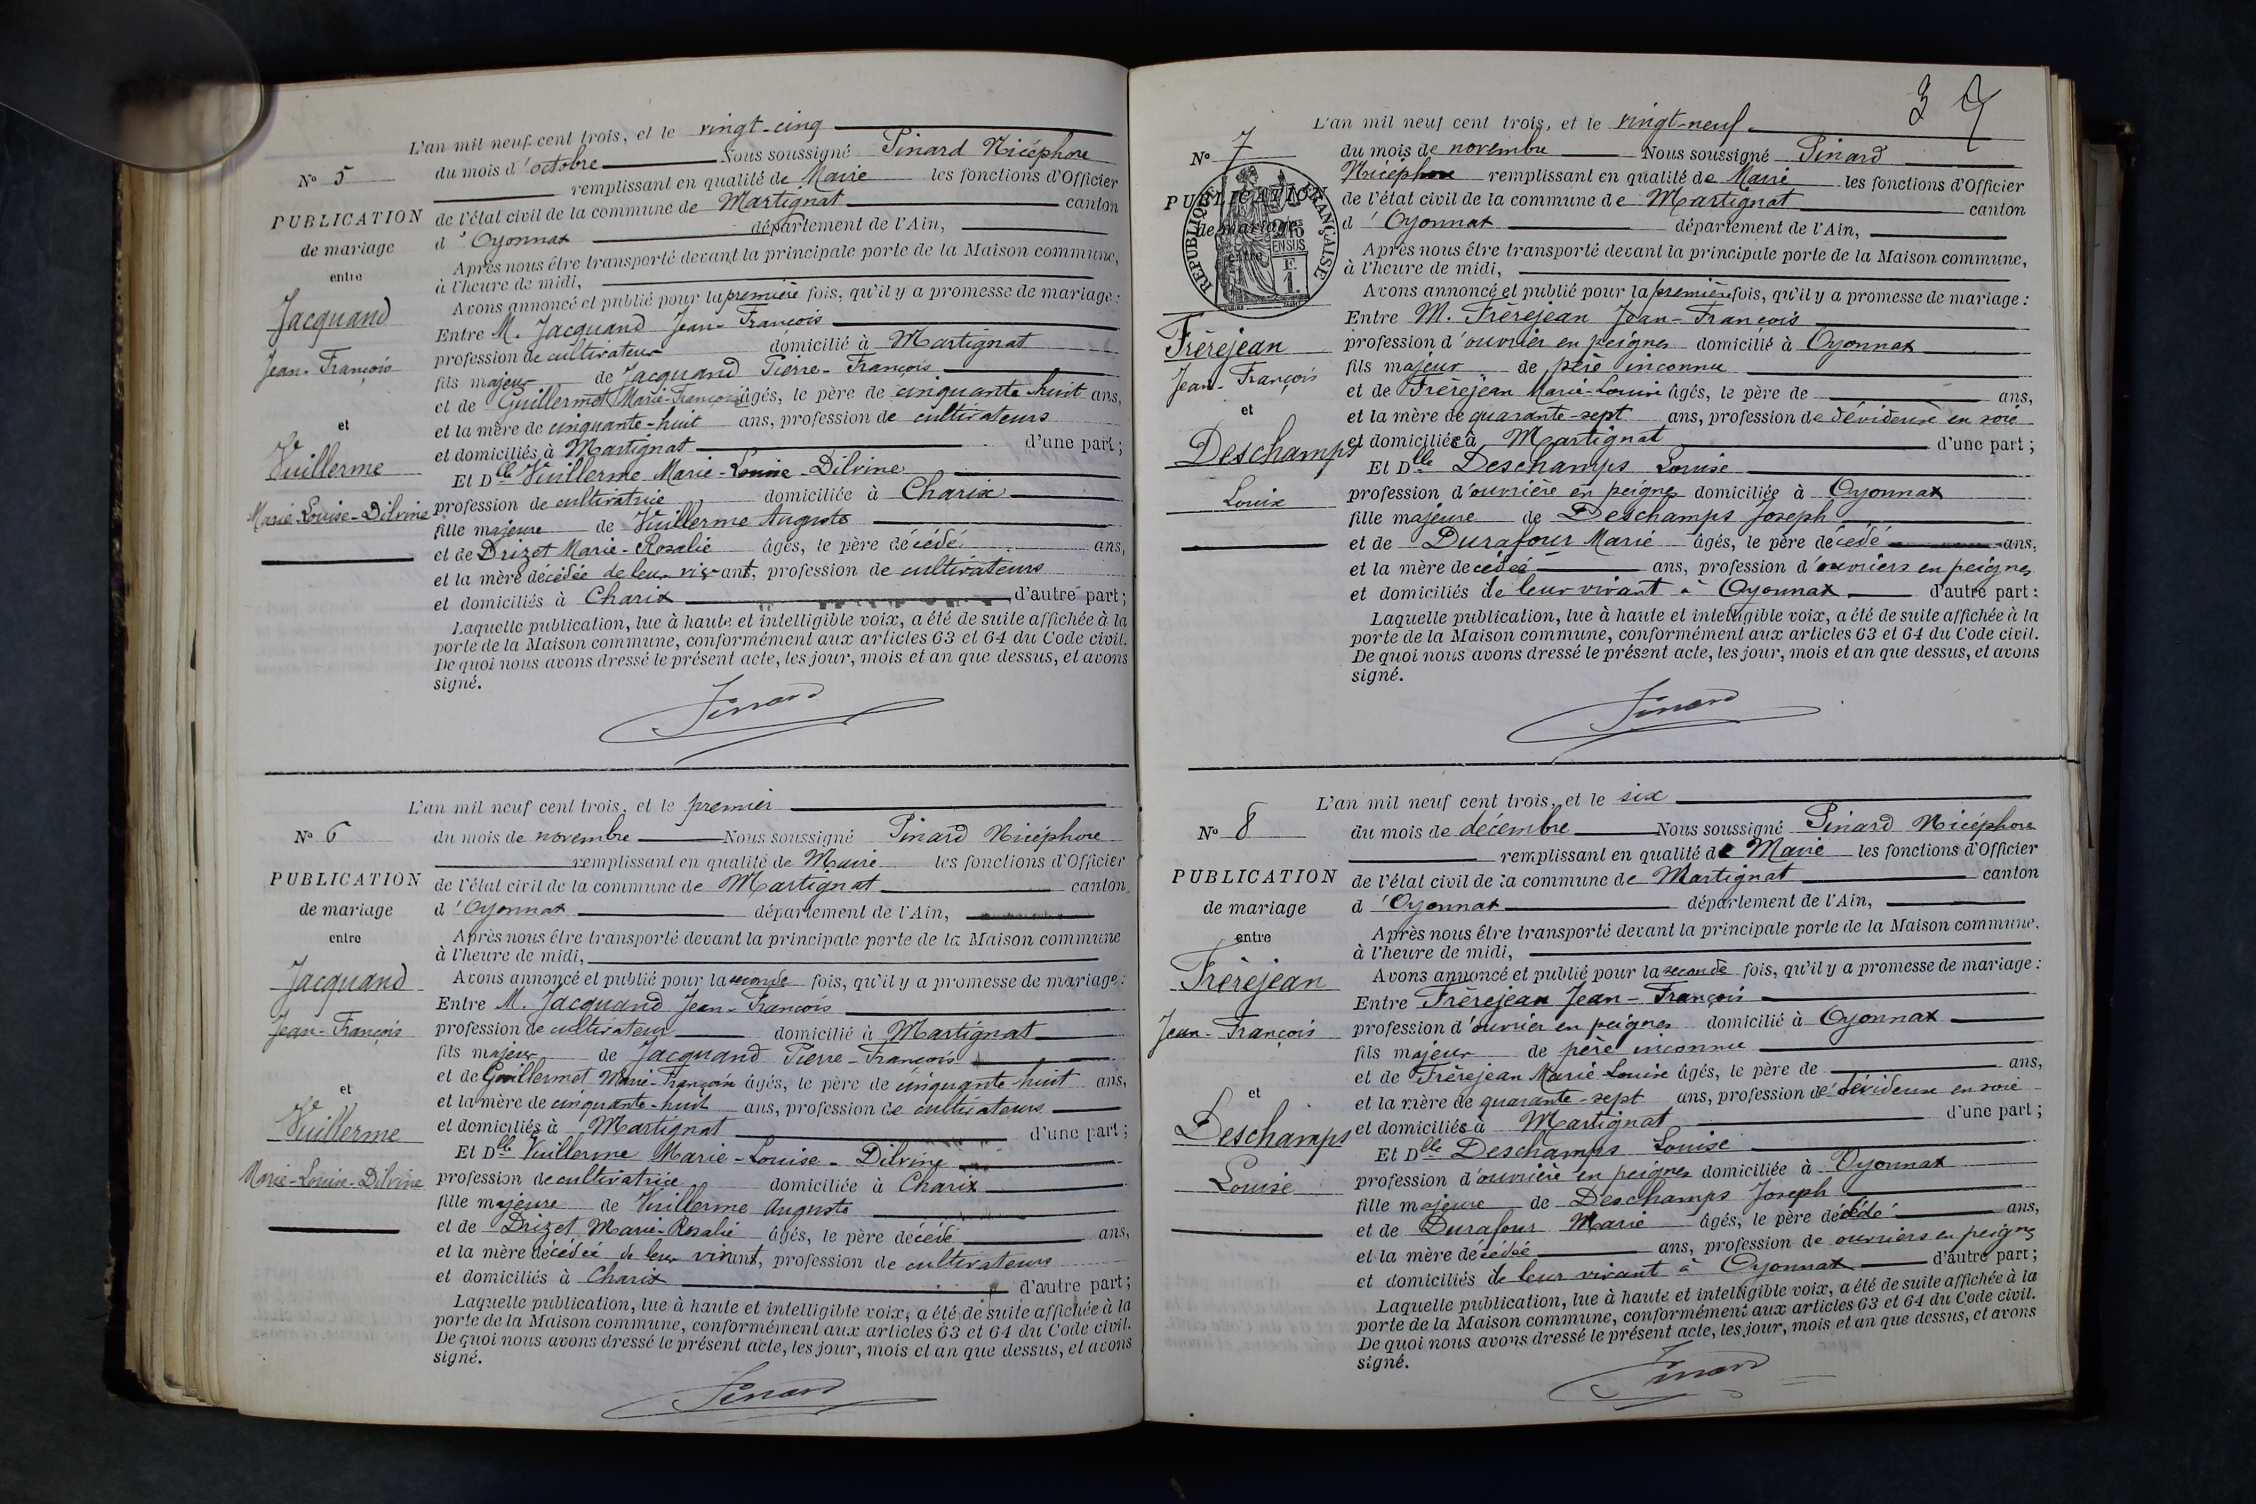 L'an mil neuf cent trois, et le vingt-cinq
N° 5
du mois d'octobre Nous soussigné Pinard Nicéphore
remplissant en qualité de Maire les fonctions d'Officier
PUBLICATION
de mariage
entre
de l'état civil de la commune de Martignat canton
d'Oyonnax département de l'Ain,
Après nous être transporté devant la principale porte de la Maison commune,
à l'heure de midi,
Avons annoncé et publié pour la première fois, qu'il y a promesse de mariage :
Jacquand
Jean-François
Entre M. Jacquand Jean-François
profession de cultivateur domicilié à Martignat
fils majeur de Jacquand Pierre-François
et de Guillermet Marie-Françoise âgés, le père de cinquante huit ans,
et la mère de cinquante-huit ans, profession de cultivateurs
et domiciliés à Martignat d'une part ;
et
Vuillerme
Marie-Louise-Dilvine
Et Dlle Vuillerme Marie-Louise-Dilvine
profession de cultivatrice domiciliée à Charix
fille majeure de Vuillerme Auguste
et de Drizet Marie-Rosalie âgés, le père décédé ans,
et la mère décédée de leur vivant, profession de cultivateurs
et domiciliés à Charix d'autre part ;
Laquelle publication, lue à haute et intelligible voix, a été de suite affichée à la
porte de la Maison commune, conformément aux articles 63 et 64 du Code civil.
De quoi nous avons dressé le présent acte, les jour, mois et an que dessus, et avons
signé.
Pinard
L'an mil neuf cent trois, et le premier
N° 6
du mois de novembre Nous soussigné Pinard Nicéphore
remplissant en qualité de Maire les fonctions d'Officier
PUBLICATION
de mariage
entre
de l'état civil de la commune de Martignat canton
d'Oyonnax département de l'Ain,
Après nous être transporté devant la principale porte de la Maison commune
à l'heure de midi,
Avons annoncé et publié pour la seconde fois, qu'il y a promesse de mariage :
Jacquand
Jean-François
Entre M. Jacquand Jean-François
profession de cultivateur domicilié à Martignat
fils majeur de Jacquand Pierre-François
et de Guillermet Marie-Françoise âgés, le père de cinquante huit ans,
et la mère de cinquante-huit ans, profession de cultivateurs
et domiciliés à Martignat d'une part ;
et
Vuillerme
Marie-Louise-Dilvine
Et Dlle Vuillerme Marie-Louise-Dilvine
profession de cultivatrice domiciliée à Charix
fille majeure de Vuillerme Auguste
et de Drizet Marie-Rosalie âgés, le père décédé ans,
et la mère décédée de leur vivant, profession de cultivateurs
et domiciliés à Charix d'autre part ;
Laquelle publication, lue à haute et intelligible voix, a été de suite affichée à la
porte de la Maison commune, conformément aux articles 63 et 64 du Code civil.
De quoi nous avons dressé le présent acte, les jour, mois et an que dessus, et avons
signé.
Pinard
3
L'an mil neuf cent trois, et le vingt-neuf
N° 7
du mois de novembre Nous soussigné Pinard
Nicéphore remplissant en qualité de Maire les fonctions d'Officier
PUBLICATION
de mariage
entre
RÉPUBLIQUE FRANÇAISE
2/10
EN SUS
F.
1.
de l'état civil de la commune de Martignat canton
d'Oyonnax département de l'Ain,
Après nous être transporté devant la principale porte de la Maison commune,
à l'heure de midi,
Avons annoncé et publié pour la première fois, qu'il y a promesse de mariage :
Frèrejean
Jean-François
Entre M. Frèrejean Jean-François
profession d'ouvrier en peignes domicilié à Oyonnax
fils majeur de père inconnu
et de Frèrejean Marie-Louise âgés, le père de ans,
et la mère de quarante-sept ans, profession de dévideuse en soie
et domiciliée à Martignat d'une part ;
et
Deschamps
Louise
Et Dlle Deschamps Louise
profession d'ouvrière en peignes domiciliée à Oyonnax
fille majeure de Deschamps Joseph
et de Durafour Marie âgés, le père décédé ans,
et la mère décédée ans, profession d'ouvriers en peignes
et domiciliés de leur vivant à Oyonnax d'autre part :
Laquelle publication, lue à haute et intelligible voix, a été de suite affichée à la
porte de la Maison commune, conformément aux articles 63 et 64 du Code civil.
De quoi nous avons dressé le présent acte, les jour, mois et an que dessus, et avons
signé.
Pinard
L'an mil neuf cent trois, et le six
N° 8
du mois de décembre Nous soussigné Pinard Nicéphore
remplissant en qualité de Maire les fonctions d'Officier
PUBLICATION
de mariage
entre
de l'état civil de la commune de Martignat canton
d'Oyonnax département de l'Ain,
Après nous être transporté devant la principale porte de la Maison commune,
à l'heure de midi,
Avons annoncé et publié pour la seconde fois, qu'il y a promesse de mariage :
Frèrejean
Jean-François
Entre Frèrejean Jean-François
profession d'ouvrier en peignes domicilié à Oyonnax
fils majeur de père inconnu
et de Frèrejean Marie Louise âgés, le père de ans,
et la mère de quarante-sept ans, profession de dévideuse en soie
et domiciliés à Martignat d'une part ;
et
Deschamps
Louise
Et Dlle Deschamps Louise
profession d'ouvrière en peignes domiciliée à Oyonnax
fille majeure de Deschamps Joseph
et de Durafour Marie âgés, le père décédé ans,
et la mère décédée ans, profession de ouvriers en peignes
et domiciliés de leur vivant à Oyonnax d'autre part ;
Laquelle publication, lue à haute et intelligible voix, a été de suite affichée à la
porte de la Maison commune, conformément aux articles 63 et 64 du Code civil.
De quoi nous avons dressé le présent acte, les jour, mois et an que dessus, et avons
signé.
Pinard